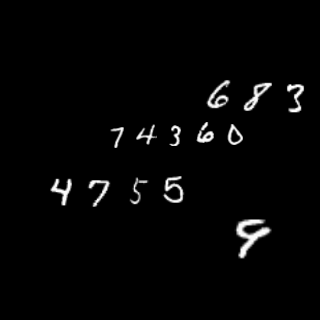 683
74360
4755
9